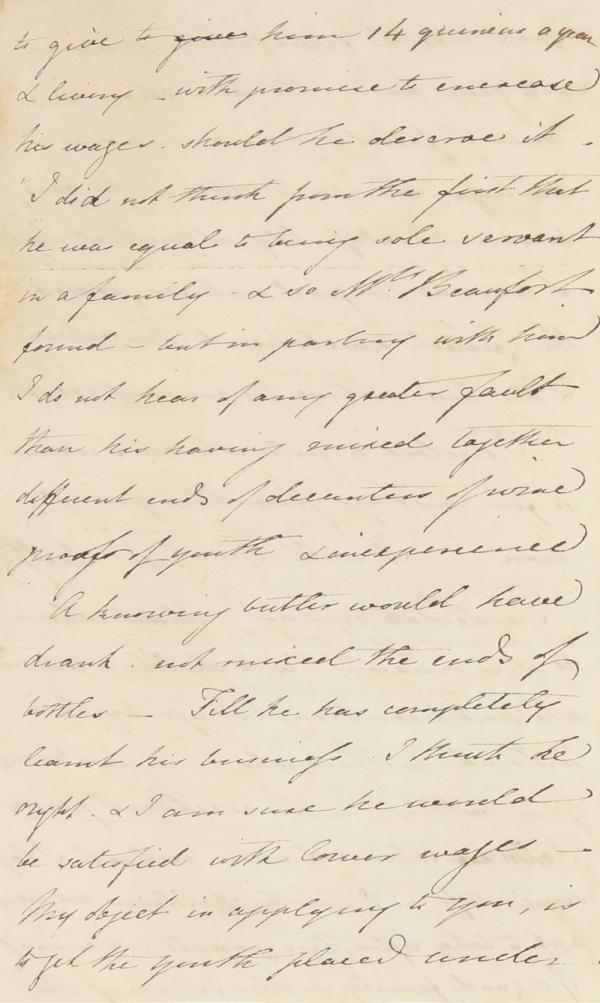 to give to give him 14 guineas a year
& living - with promise to encrease
his wages. should he deserve it -
I did not think from the first that
he was equal to being sole servant
in a family. & so Mrs. Beaufort
found - but in parting with him
I do not hear of any greater fault
than his having mixed together
different ends of decanters of wine
proofs of youth & inexperience
A knowing butler would have
drank. not mixed the ends of
bottles - Till he has completely
learnt his business I think he
ought. & I am sure he would
be satisfied with lower wages -
My object in applying to you, is
to get the youth placed under